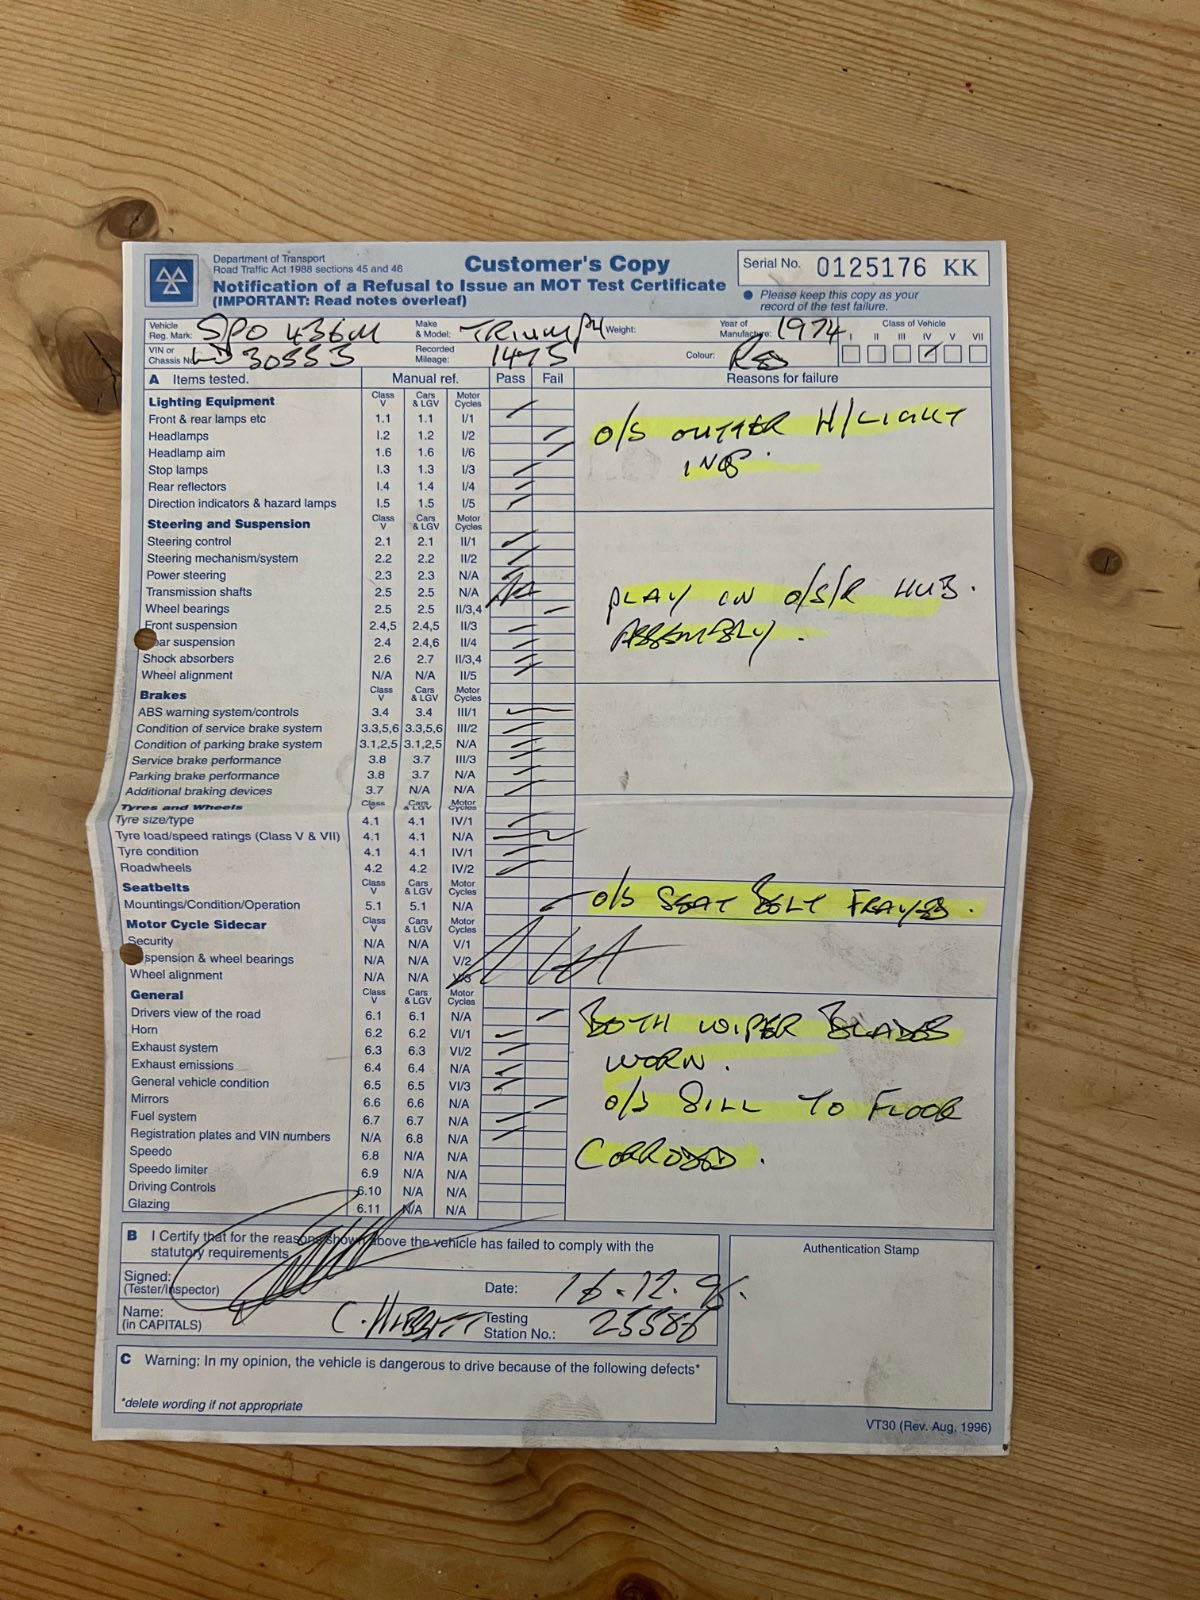 Department of Transport
Road Traffic Act 1988 sections 45 and 46
Customer's Copy
Notification of a Refusal to Issue an MOT Test Certificate
(IMPORTANT: Read notes overleaf)
Serial No. 0125176 KK
● Please keep this copy as your record of the test failure.
Vehicle Reg. Mark: SPO 436M Make & Model: TRIUMPH Weight: Year of Manufacture: 1974 Class of Vehicle I II III IV V VII
VIN or Chassis No. 30553 Recorded Mileage: 1475 Colour: RED
A Items tested. Manual ref. Pass Fail Reasons for failure
Lighting Equipment Class V Cars & LGV Motor Cycles
Front & rear lamps etc 1.1 1.1 I/1 O/S OUTTER H/LIGHT
Headlamps 1.2 1.2 I/2
Headlamp aim 1.6 1.6 I/6 INOP.
Stop lamps 1.3 1.3 I/3
Rear reflectors 1.4 1.4 I/4
Direction indicators & hazard lamps 1.5 1.5 I/5
Steering and Suspension Class V Cars & LGV Motor Cycles
Steering control 2.1 2.1 II/1
Steering mechanism/system 2.2 2.2 II/2
Power steering 2.3 2.3 N/A
Transmission shafts 2.5 2.5 N/A NA PLAY IN O/S/R HUB.
Wheel bearings 2.5 2.5 II/3,4
Front suspension 2.4,5 2.4,5 II/3 ASSEMBLY.
ar suspension 2.4 2.4,6 II/4
Shock absorbers 2.6 2.7 II/3,4
Wheel alignment N/A N/A II/5
Brakes Class V Cars & LGV Motor Cycles
ABS warning system/controls 3.4 3.4 III/1
Condition of service brake system 3.3,5,6 3.3,5,6 III/2
Condition of parking brake system 3.1,2,5 3.1,2,5 N/A
Service brake performance 3.8 3.7 III/3
Parking brake performance 3.8 3.7 N/A
Additional braking devices 3.7 N/A N/A
Tyres and Wheels Class V Cars & LGV Motor Cycles
Tyre size/type 4.1 4.1 IV/1
Tyre load/speed ratings (Class V & VII) 4.1 4.1 N/A
Tyre condition 4.1 4.1 IV/1
Roadwheels 4.2 4.2 IV/2
Seatbelts Class V Cars & LGV Motor Cycles
Mountings/Condition/Operation 5.1 5.1 N/A O/S SEAT BELT FRAYED.
Motor Cycle Sidecar Class V Cars & LGV Motor Cycles
Security N/A N/A V/1
spension & wheel bearings N/A N/A V/2 N/A
Wheel alignment N/A N/A V/3
General Class V Cars & LGV Motor Cycles
Drivers view of the road 6.1 6.1 N/A BOTH WIPER BLADES
Horn 6.2 6.2 VI/1
Exhaust system 6.3 6.3 VI/2 WORN.
Exhaust emissions 6.4 6.4 N/A
General vehicle condition 6.5 6.5 VI/3
Mirrors 6.6 6.6 N/A O/S SILL TO FLOOR
Fuel system 6.7 6.7 N/A
Registration plates and VIN numbers N/A 6.8 N/A
Speedo 6.8 N/A N/A CORRODED.
Speedo limiter 6.9 N/A N/A
Driving Controls 6.10 N/A N/A
Glazing 6.11 N/A N/A
B I Certify that for the reasons shown above the vehicle has failed to comply with the statutory requirements
Signed: (Tester/Inspector) Date: 16.12.96.
Name: (in CAPITALS) C. Testing Station No.: 25586
Authentication Stamp
C Warning: In my opinion, the vehicle is dangerous to drive because of the following defects*
*delete wording if not appropriate
VT30 (Rev. Aug. 1996)